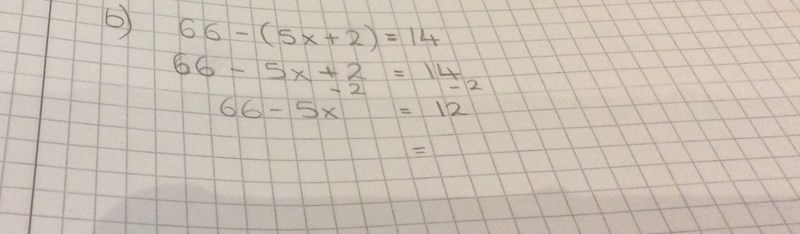 b) 66 - (5x + 2) = 14
66 - 5x + 2 = 14
- 2 - 2
66 - 5x = 12
=